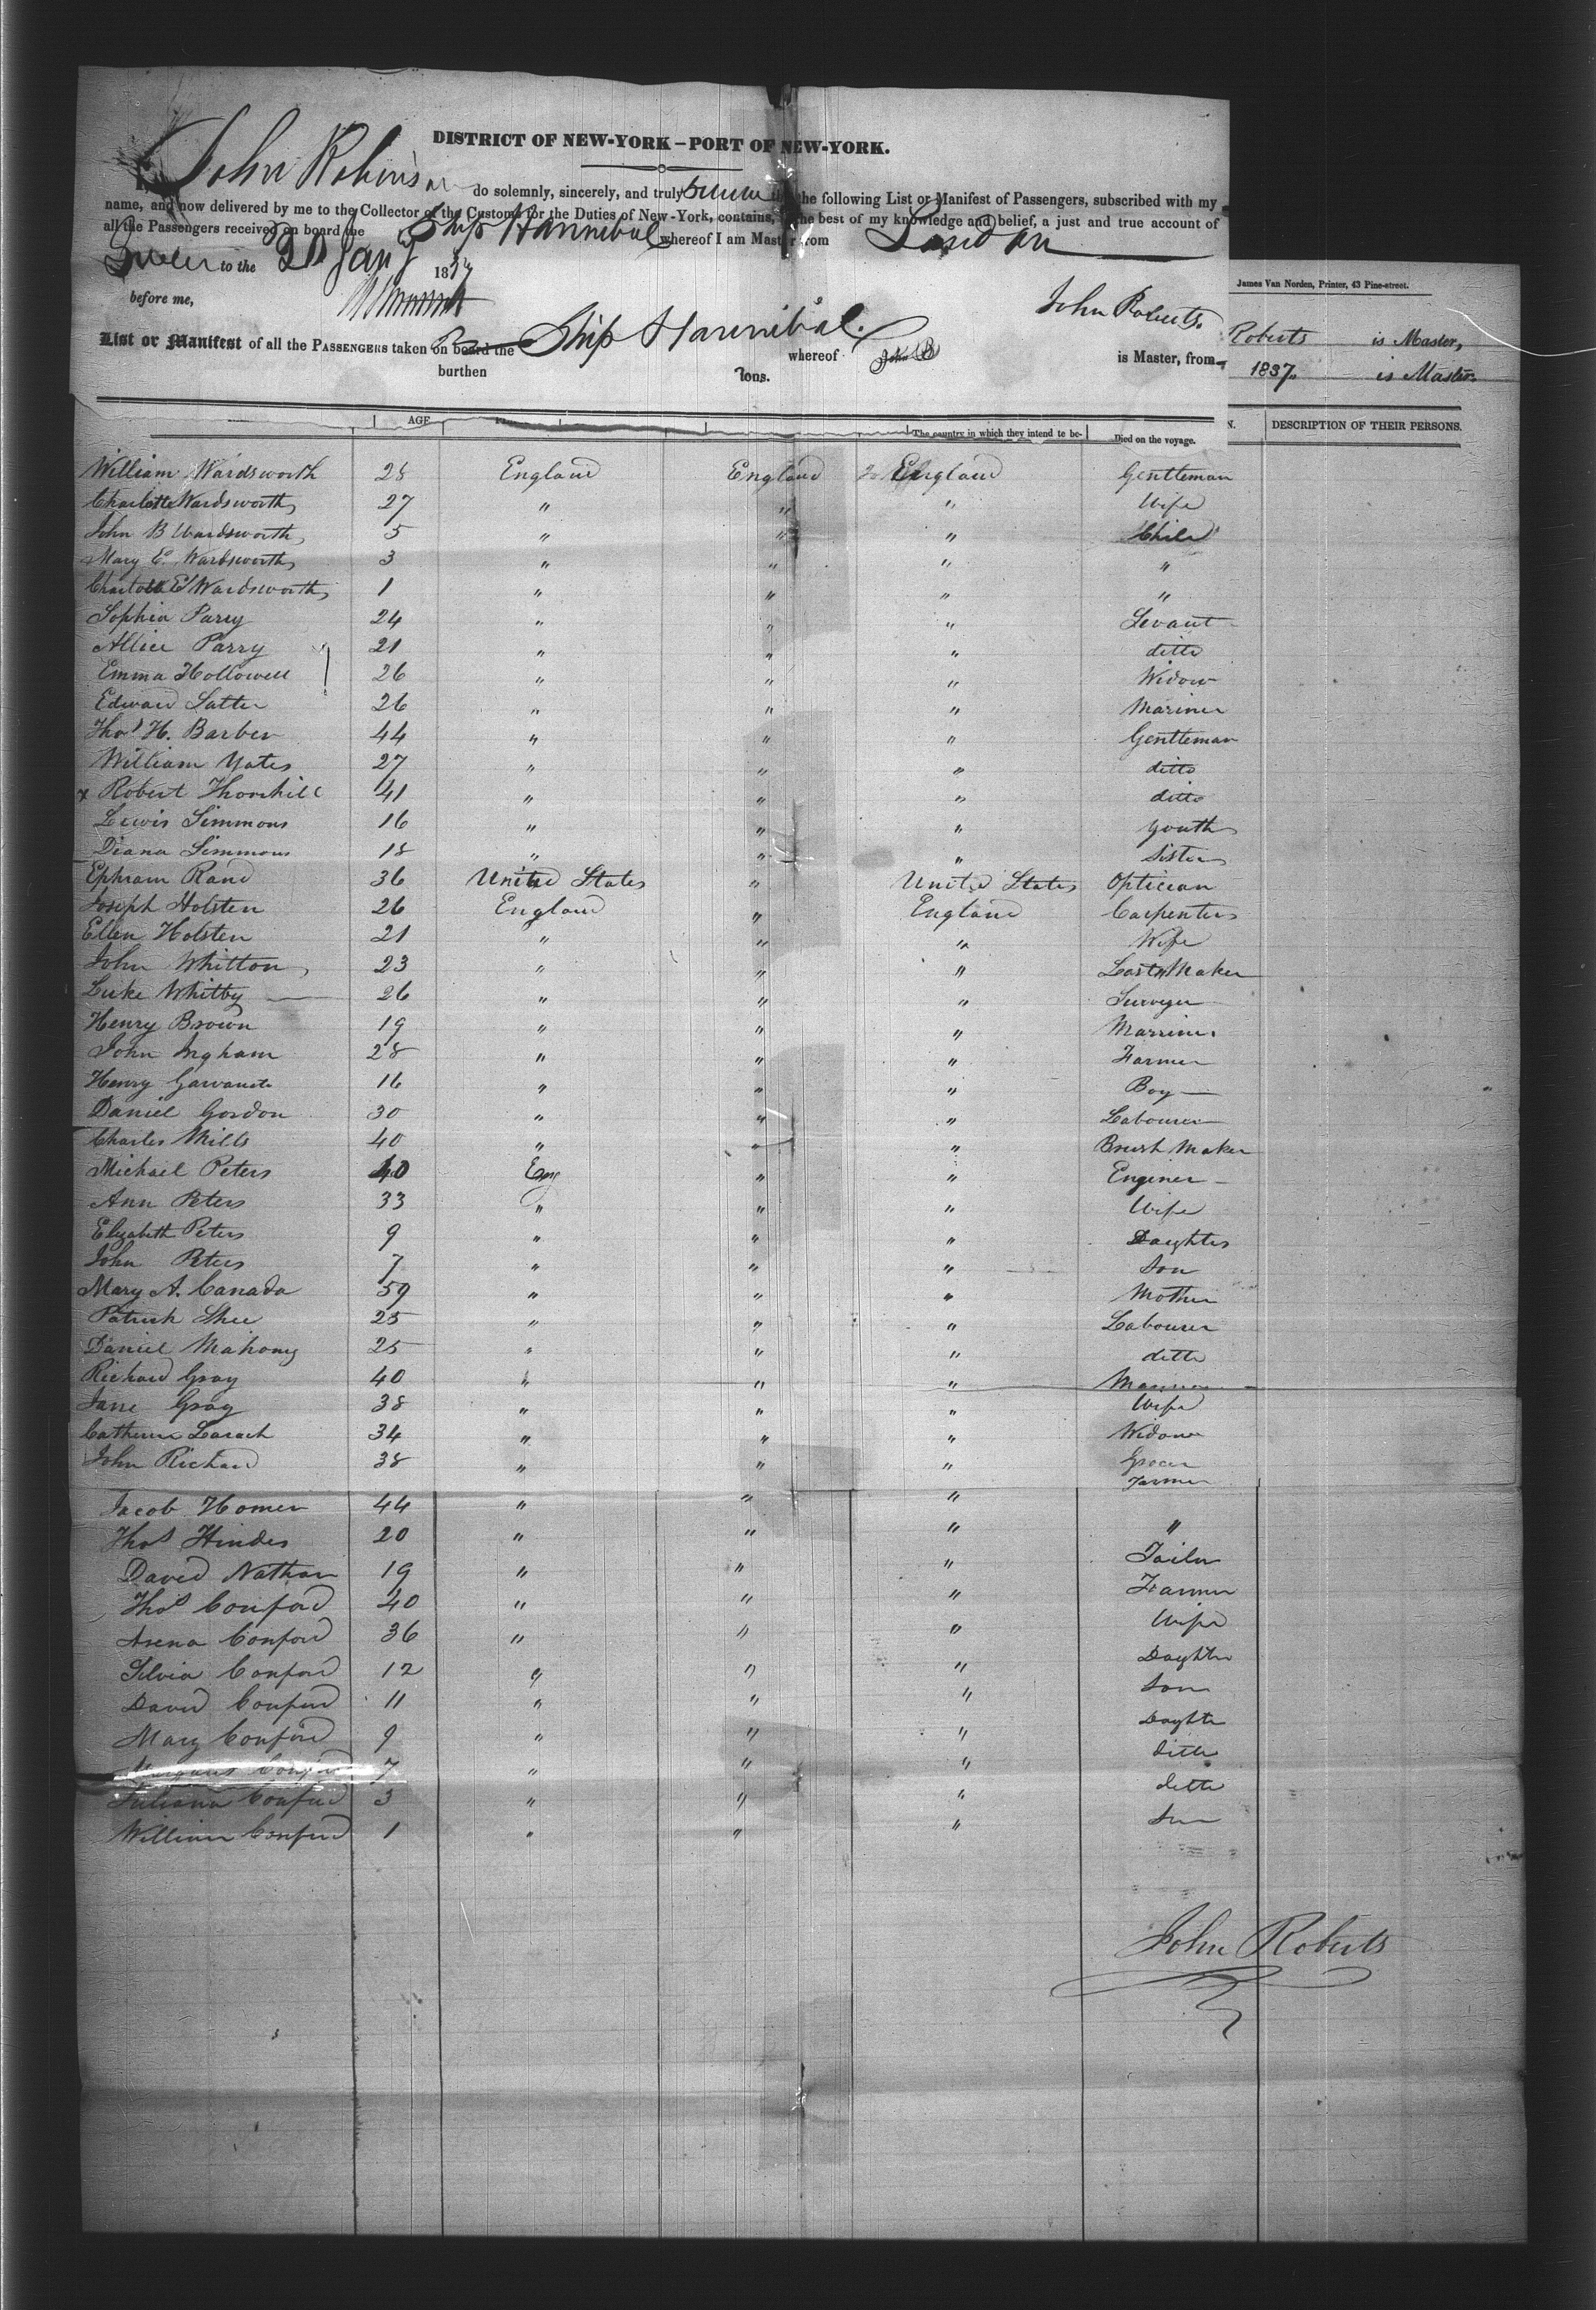 DISTRICT OF NEW-YORK – PORT OF NEW-YORK.
I, John Robinson do solemnly, sincerely, and truly swear that the following List or Manifest of Passengers, subscribed with my
name, and now delivered by me to the Collector of the Customs for the Duties of New-York, contains, to the best of my knowledge and belief, a just and true account of
all the Passengers received on board the Ship Hannibal whereof I am Master from London
to the 20 Jany 1837
before me,
John Roberts
James Van Norden, Printer, 43 Pine-street.
List or Manifest of all the PASSENGERS taken on board the Ship Hannibal. whereof is Master, from
burthen tons.
Roberts is Master,
1837. is Master
AGE The country in which they intend to be- Died on the voyage. N. DESCRIPTION OF THEIR PERSONS.
William Wardsworth 28 England England England Gentleman
Charlotte Wardsworth 27 " " " Wife
John B Wardsworth 5 " " " Child
Mary E. Wardsworth 3 " " " "
Charlotte E Wardsworth 1 " " " "
Sophia Parry 24 " " " Sevant
Allice Parry 21 " " " ditto
Emma Hollowell 26 " " " Widow
Edward Satter 26 " " " Mariner
Thos H. Barber 44 " " " Gentleman
William Yates 27 " " " ditto
x Robert Thornhill 41 " " " ditto
Lewis Simmons 16 " " " Youth
Diana Simmons 18 " " " Sister
Ephram Rand 36 United States " United States Optician
Joseph Holsten 26 England " England Carpenter
Ellen Holsten 21 " " " Wife
John Whitton 23 " " " Last Maker
Luke Whitby 26 " " " Surveyer
Henry Brown 19 " " " Marriner
John Ingham 28 " " " Farmer
Henry 16 " " " Boy
Daniel Gordon 30 " " " Labourer
Charles Mills 40 " " " Brush Maker
Michael Peters 40 Eng " " Enginer
Ann Peters 33 " " " Wife
Elizabeth Peters 9 " " " Daughter
John Peters 7 " " " Son
Mary A. Canada 59 " " " Mother
Patrick Shee 25 " " " Labourer
Daniel Mahony 25 " " " ditto
Richard Gray 40 " " "
Jane Gray 38 " " " Wife
Catherine 34 " " " Widow
John Richard 38 " " " Grocer
Farmer
Jacob Homer 44 " " "
Thos Hindes 20 " " " "
David Nathan 19 " " " Tailor
Thos Conford 40 " " " Farmer
Asena Conford 36 " " " Wife
Silvia Conford 12 " " " Daghter
David Conford 11 " " " Son
Mary Conford 9 " " " Daghter
Margaret Conford 7 " " " ditto
Juliana Conford 3 " " " ditto
William Conford 1 " " " Son
John Roberts